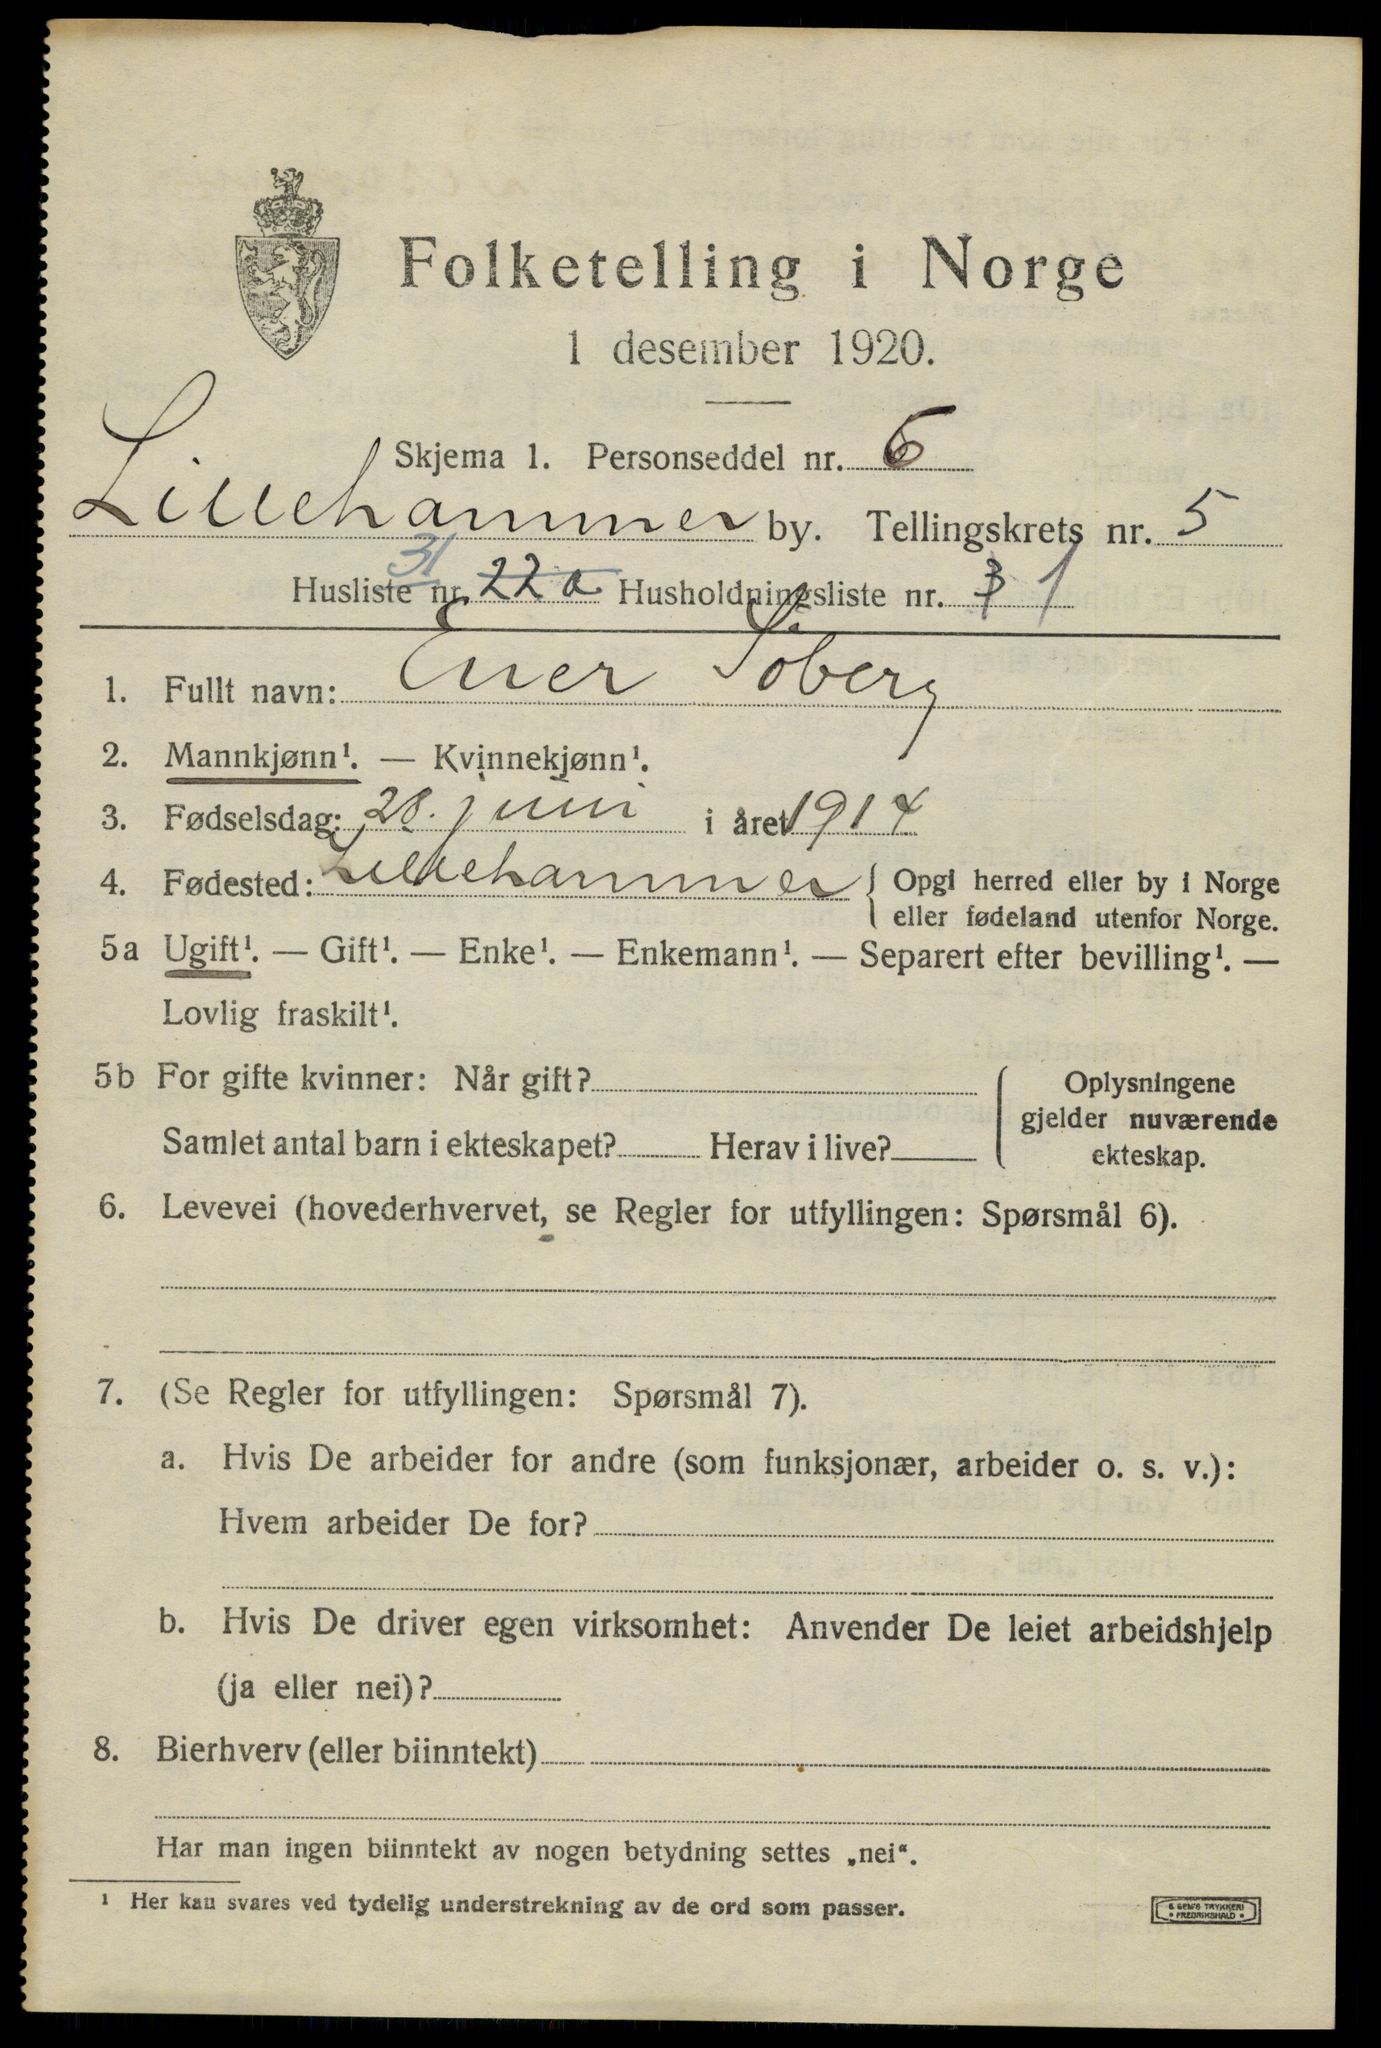 Folketelling i Norge
1 desember 1920.
Skjema 1. Personseddel nr. 6
Lillehammer by. Tellingskrets nr. 5
Husliste nr. 31 22 a Husholdningsliste nr. 3 1
1. Fullt navn: Söberg
2. Mannkjønn¹. — Kvinnekjønn¹.
3. Fødselsdag: 28. juni i året 1914
4. Fødested: Lillehammer { Opgi herred eller by i Norge
eller fødeland utenfor Norge.
5a Ugift¹. — Gift¹. — Enke¹. — Enkemann¹. — Separert efter bevilling¹. —
Lovlig fraskilt¹.
5b For gifte kvinner: Når gift? { Oplysningene
gjelder nuværende
Samlet antal barn i ekteskapet? Herav i live?
ekteskap.
6. Levevei (hovederhvervet, se Regler for utfyllingen: Spørsmål 6).
7. (Se Regler for utfyllingen: Spørsmål 7).
a. Hvis De arbeider for andre (som funksjonær, arbeider o. s. v.):
Hvem arbeider De for?
b. Hvis De driver egen virksomhet: Anvender De leiet arbeidshjelp
(ja eller nei)?
8. Bierhverv (eller biinntekt)
Har man ingen biinntekt av nogen betydning settes „nei“.
¹ Her kan svares ved tydelig understrekning av de ord som passer.
TRYKKERI
FREDRIKSHALD